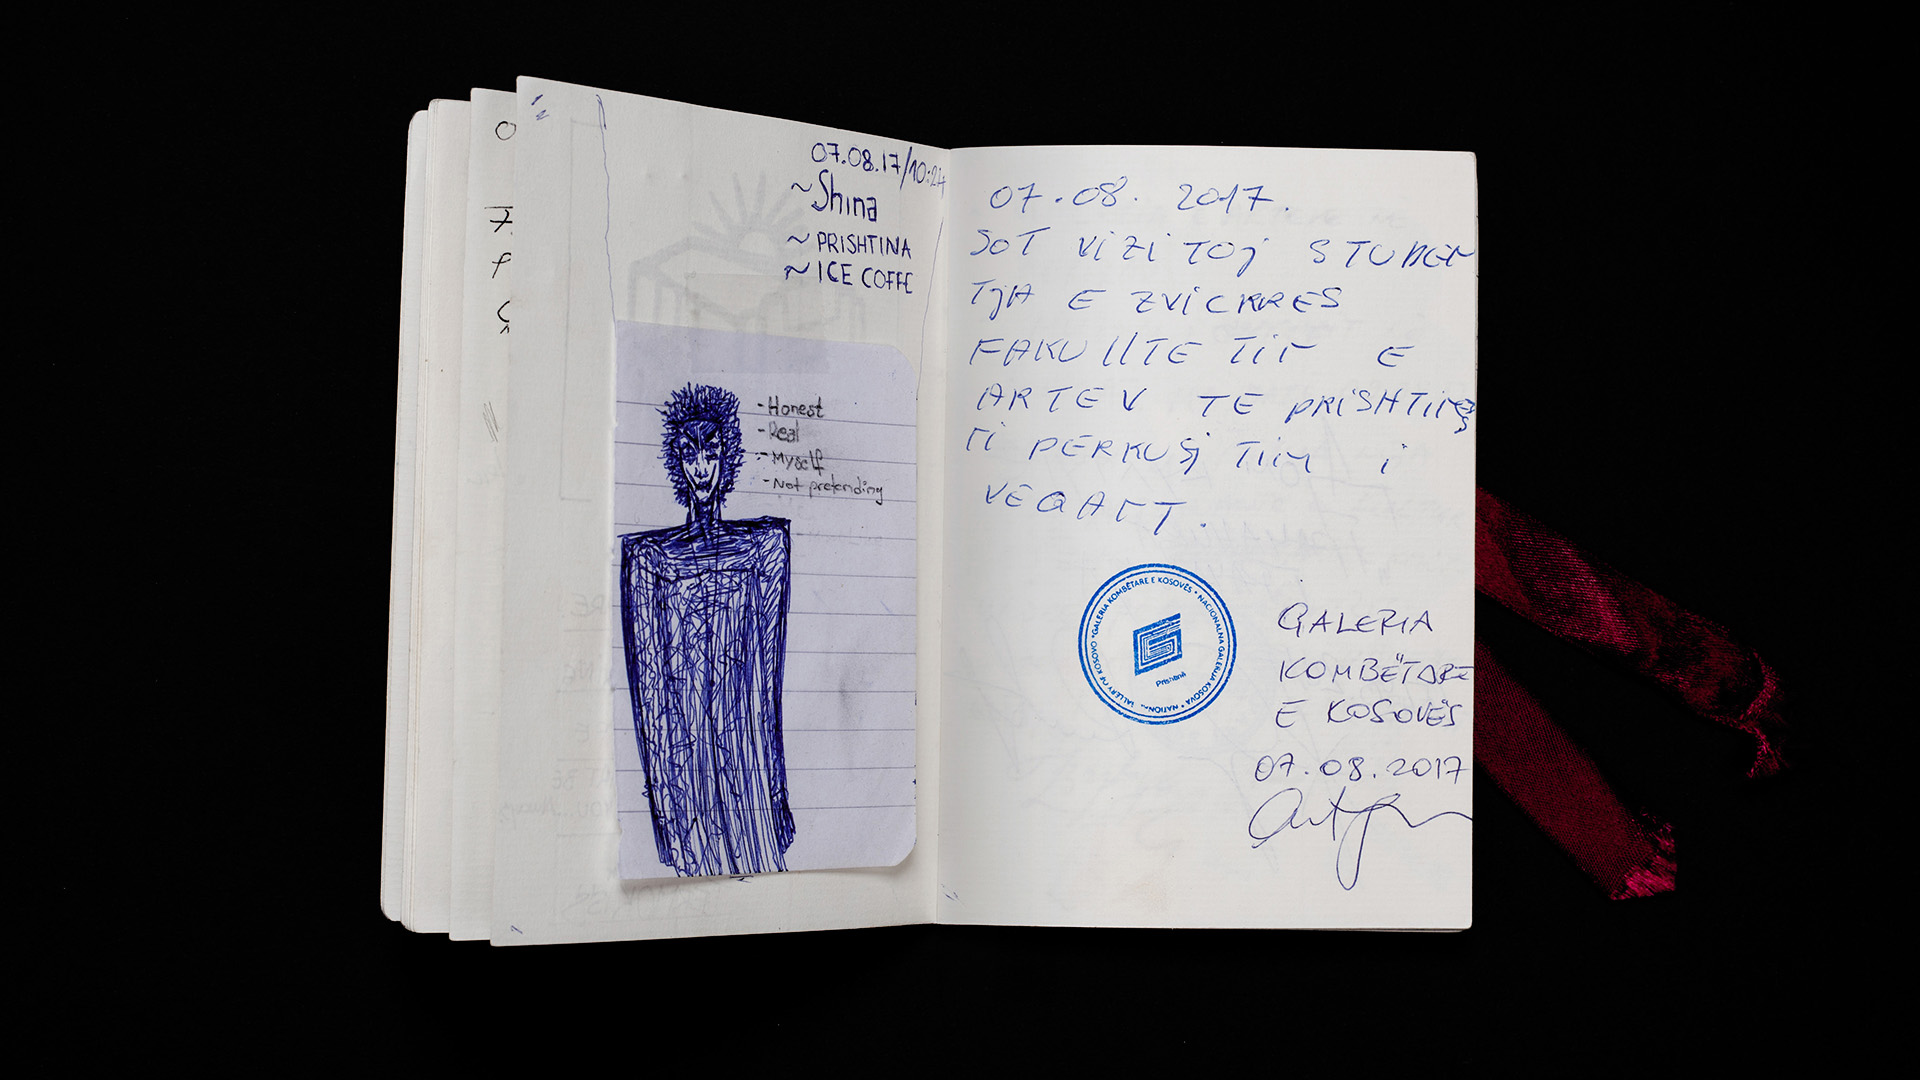 07.08.17/10:24
~Shina
~ PRISHTINA
~ ICE COFFE
-Honest
-Real
-Myself
-Not pretending
07.08. 2017.
SOT VIZITOJ STUDEN
TJA E ZVICRRES
FAKULLTETIT E
ARTEV TE PRISHTINES
ME PERKUSHTIM I
VEQANT.
*GALERIA KOMBËTARE E KOSOVËS * NACIONALNA GALERIJA KOSOVA * NATIONAL GALLERY OF KOSOVO
Prishtinë
GALERIA
KOMBËTARE
E KOSOVËS
07.08.2017